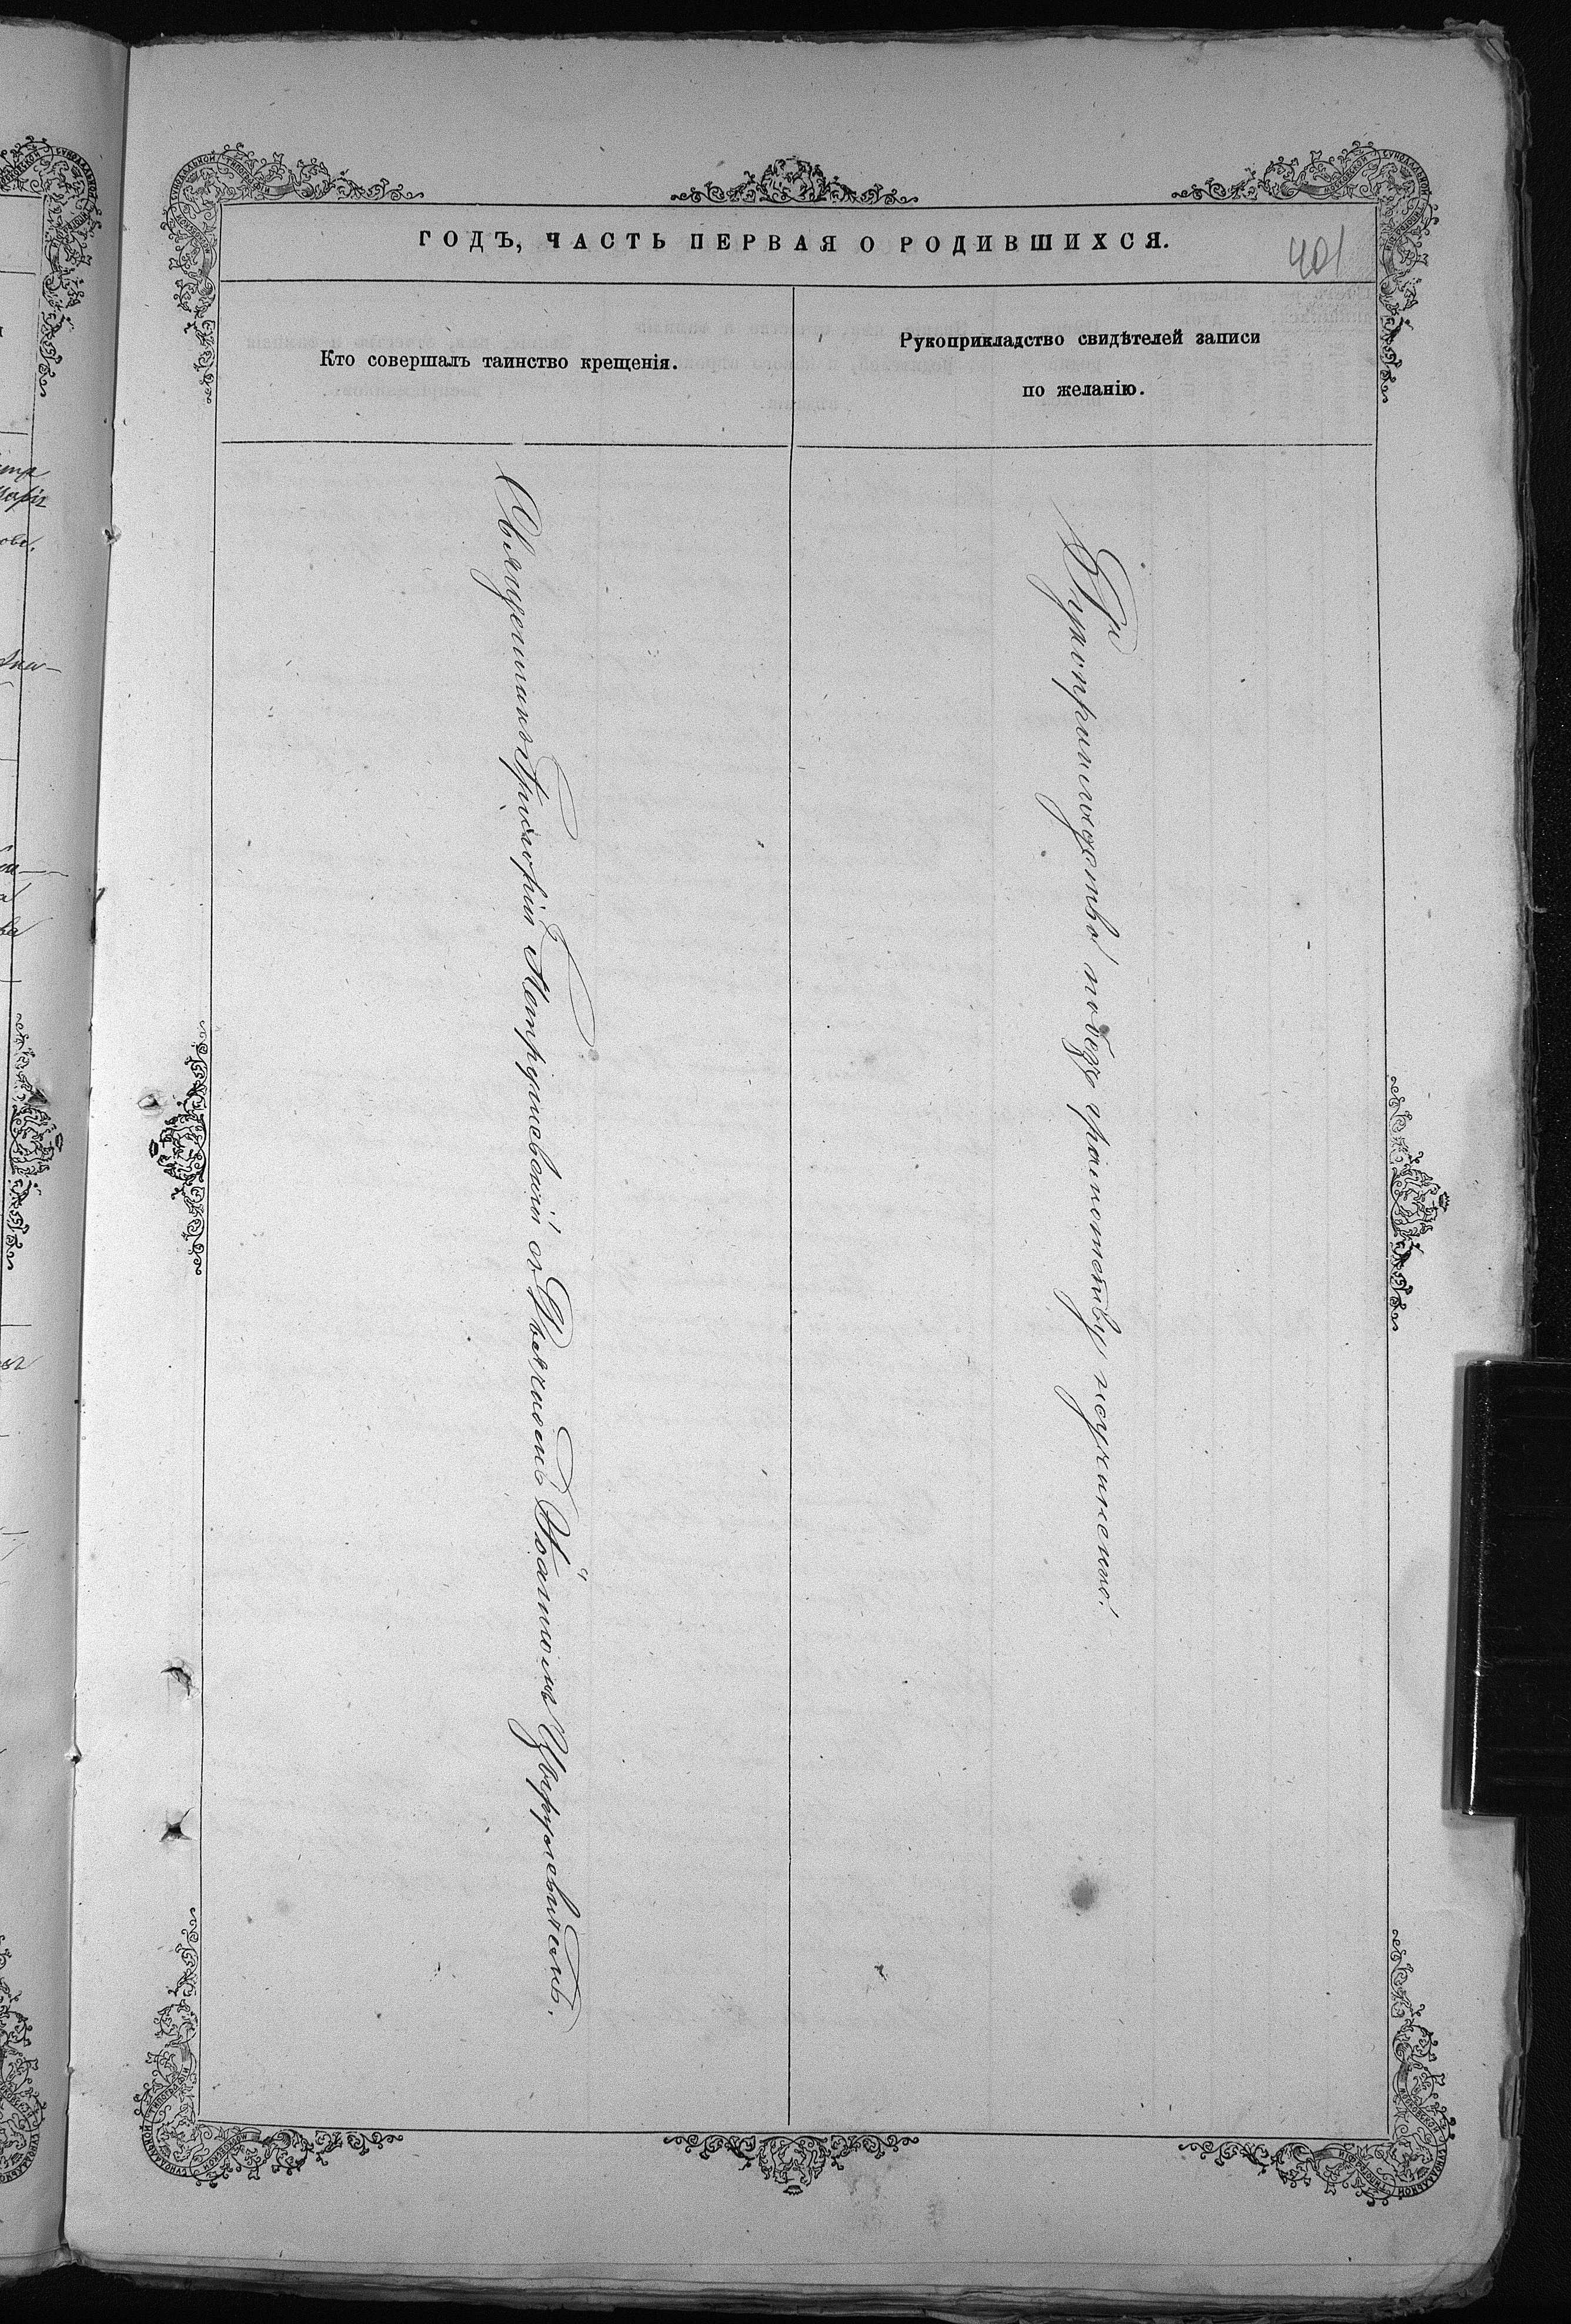 ГОДЪ, ЧАСТЬ ПЕРВАЯ О РОДИВШИХСЯ.
401
Кто совершалъ таинство крещенія.
Рукоприкладство свидѣтелей записи
по желанію.
Священникъ Григорій Петрушевскій съ Дьячкомъ Іоанномъ
Рукоприкладство по безграмотству неучинено.